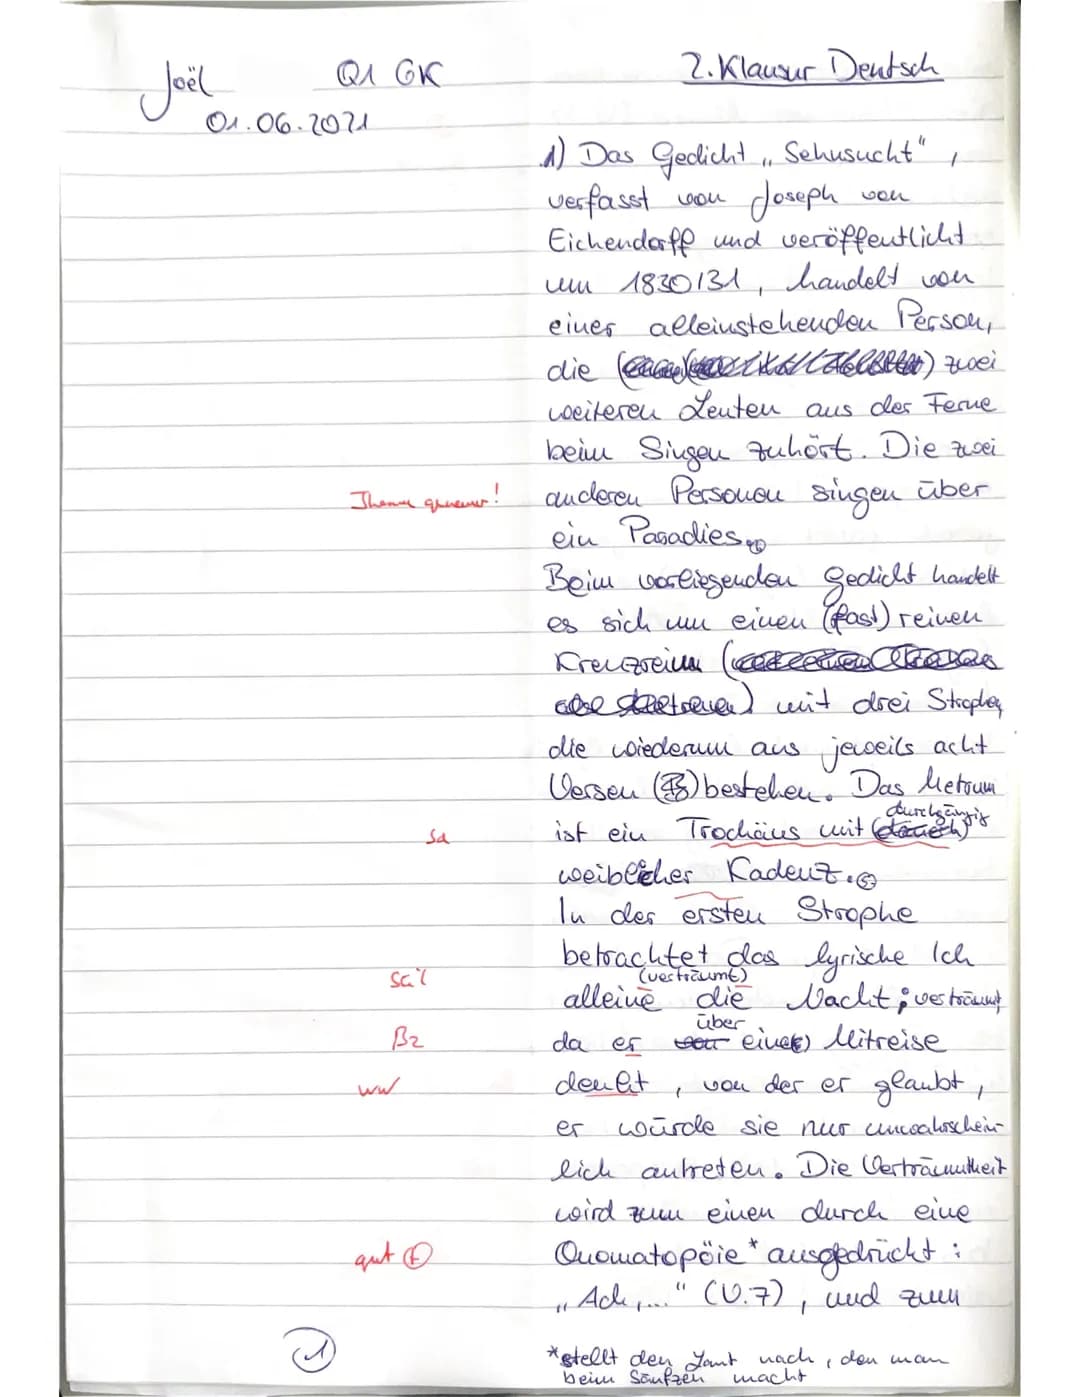 Joël Q1 GK 2. Klausur Deutsch
01.06.2021
1) Das Gedicht „Sehnsucht",
verfasst von Joseph von
Eichendorff und veröffentlicht
um 1830/31, handelt von
einer alleinstehenden Person,
die ( ) zwei
weiteren Leuten aus der Ferne
beim Singen zuhört. Die zwei
Thema genauer! anderen Personen singen über
ein Paradies.
Beim vorliegenden Gedicht handelt
es sich um einen (fast) reinen
Kreuzreim (
) mit drei Strophen,
die wiederum aus jeweils acht
Versen ( ) bestehen. Das Metrum
durchgängig
Sa ist ein Trochäus mit
weiblicher Kadenz.
In der ersten Strophe
betrachtet das lyrische Ich
(verträumt)
Sa? alleine die Nacht, verträumt
über
Bz da er eine Mitreise
ww denkt, von der er glaubt,
er würde sie nur unwahrschein-
lich antreten. Die Verträumtheit
wird zum einen durch eine
gut + Onomatopöie* ausgedrückt:
„Ach,..." (V.7), und zum
1
*stellt den Laut nach, den man
beim Säufzen macht